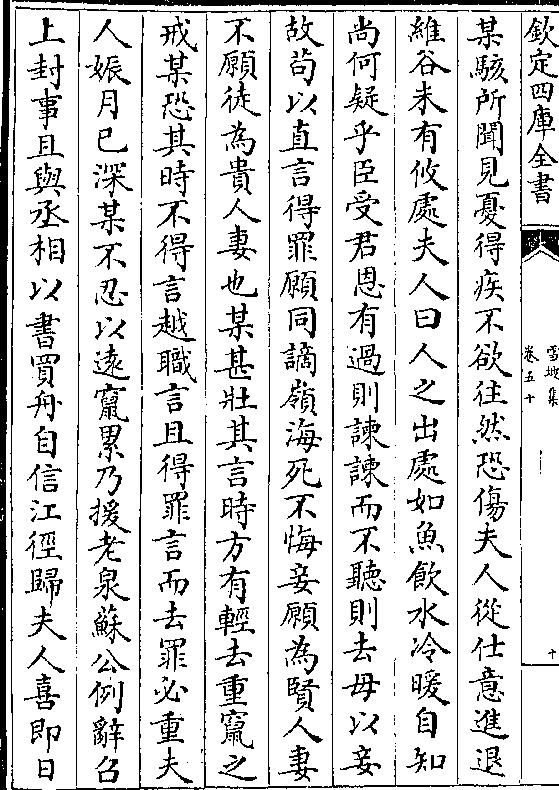 欽定四庫全書
雪坡集
卷五十
十
某駭所聞見憂得疾不欲往然恐傷夫人從仕意進退
維谷未有攸處夫人曰人之出處如魚飲水冷暖自知
尚何疑乎臣受君恩有過則諫諫而不聽則去毋以妾
故茍以直言得罪願同謫嶺海死不悔妾願為賢人妻
不願徒為貴人妻也某甚壯其言時方有輕去重竄之
戒某恐其時不得言越職言且得罪言而去罪必重夫
人娠月已深某不忍以遠竄累乃援老泉蘇公例辭召
上封事且與丞相以書買舟自信江徑歸夫人喜即日